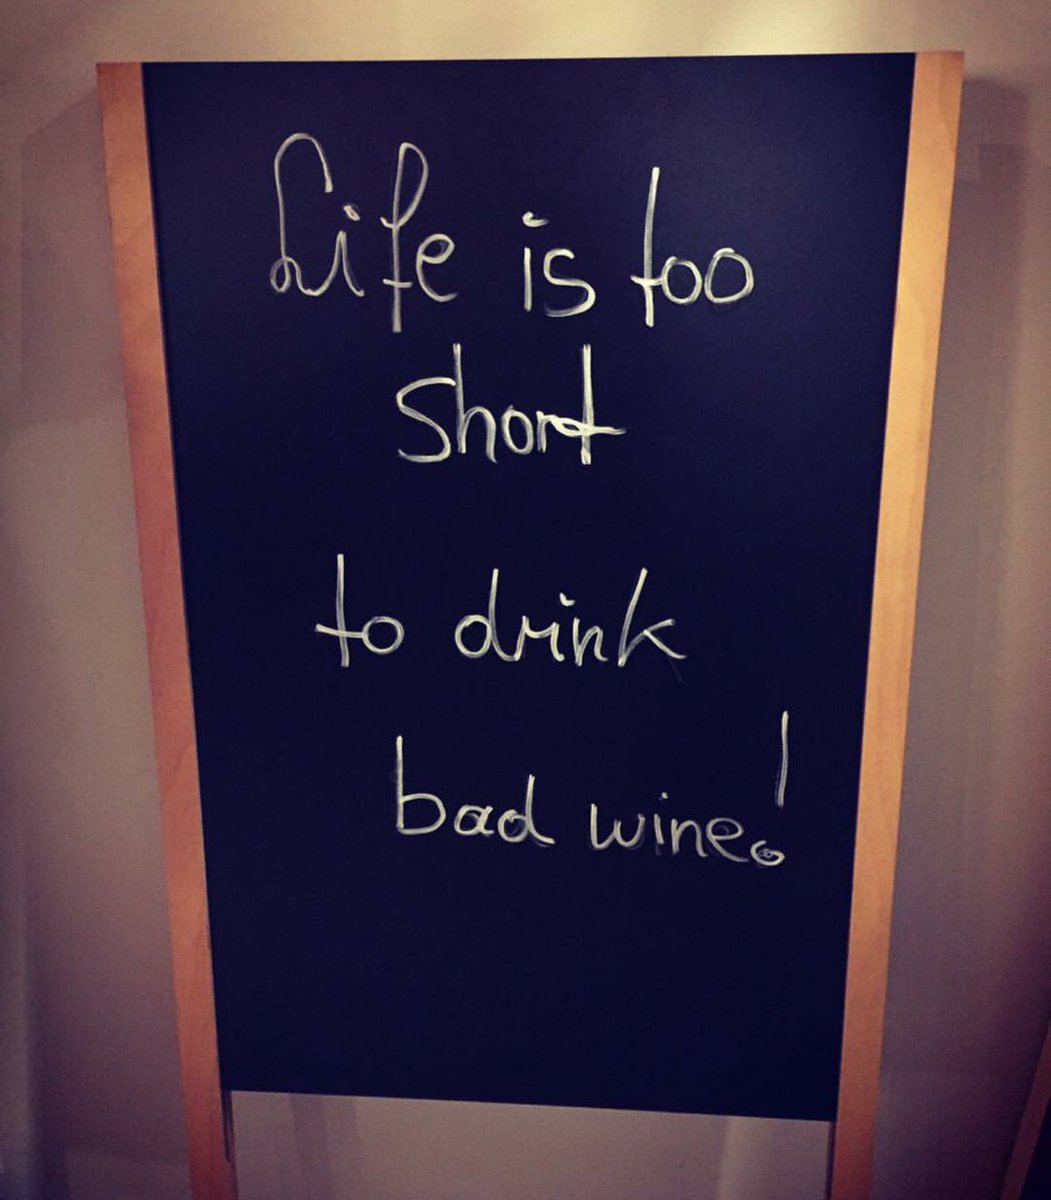 Life is too
short
to drink
bad wine!